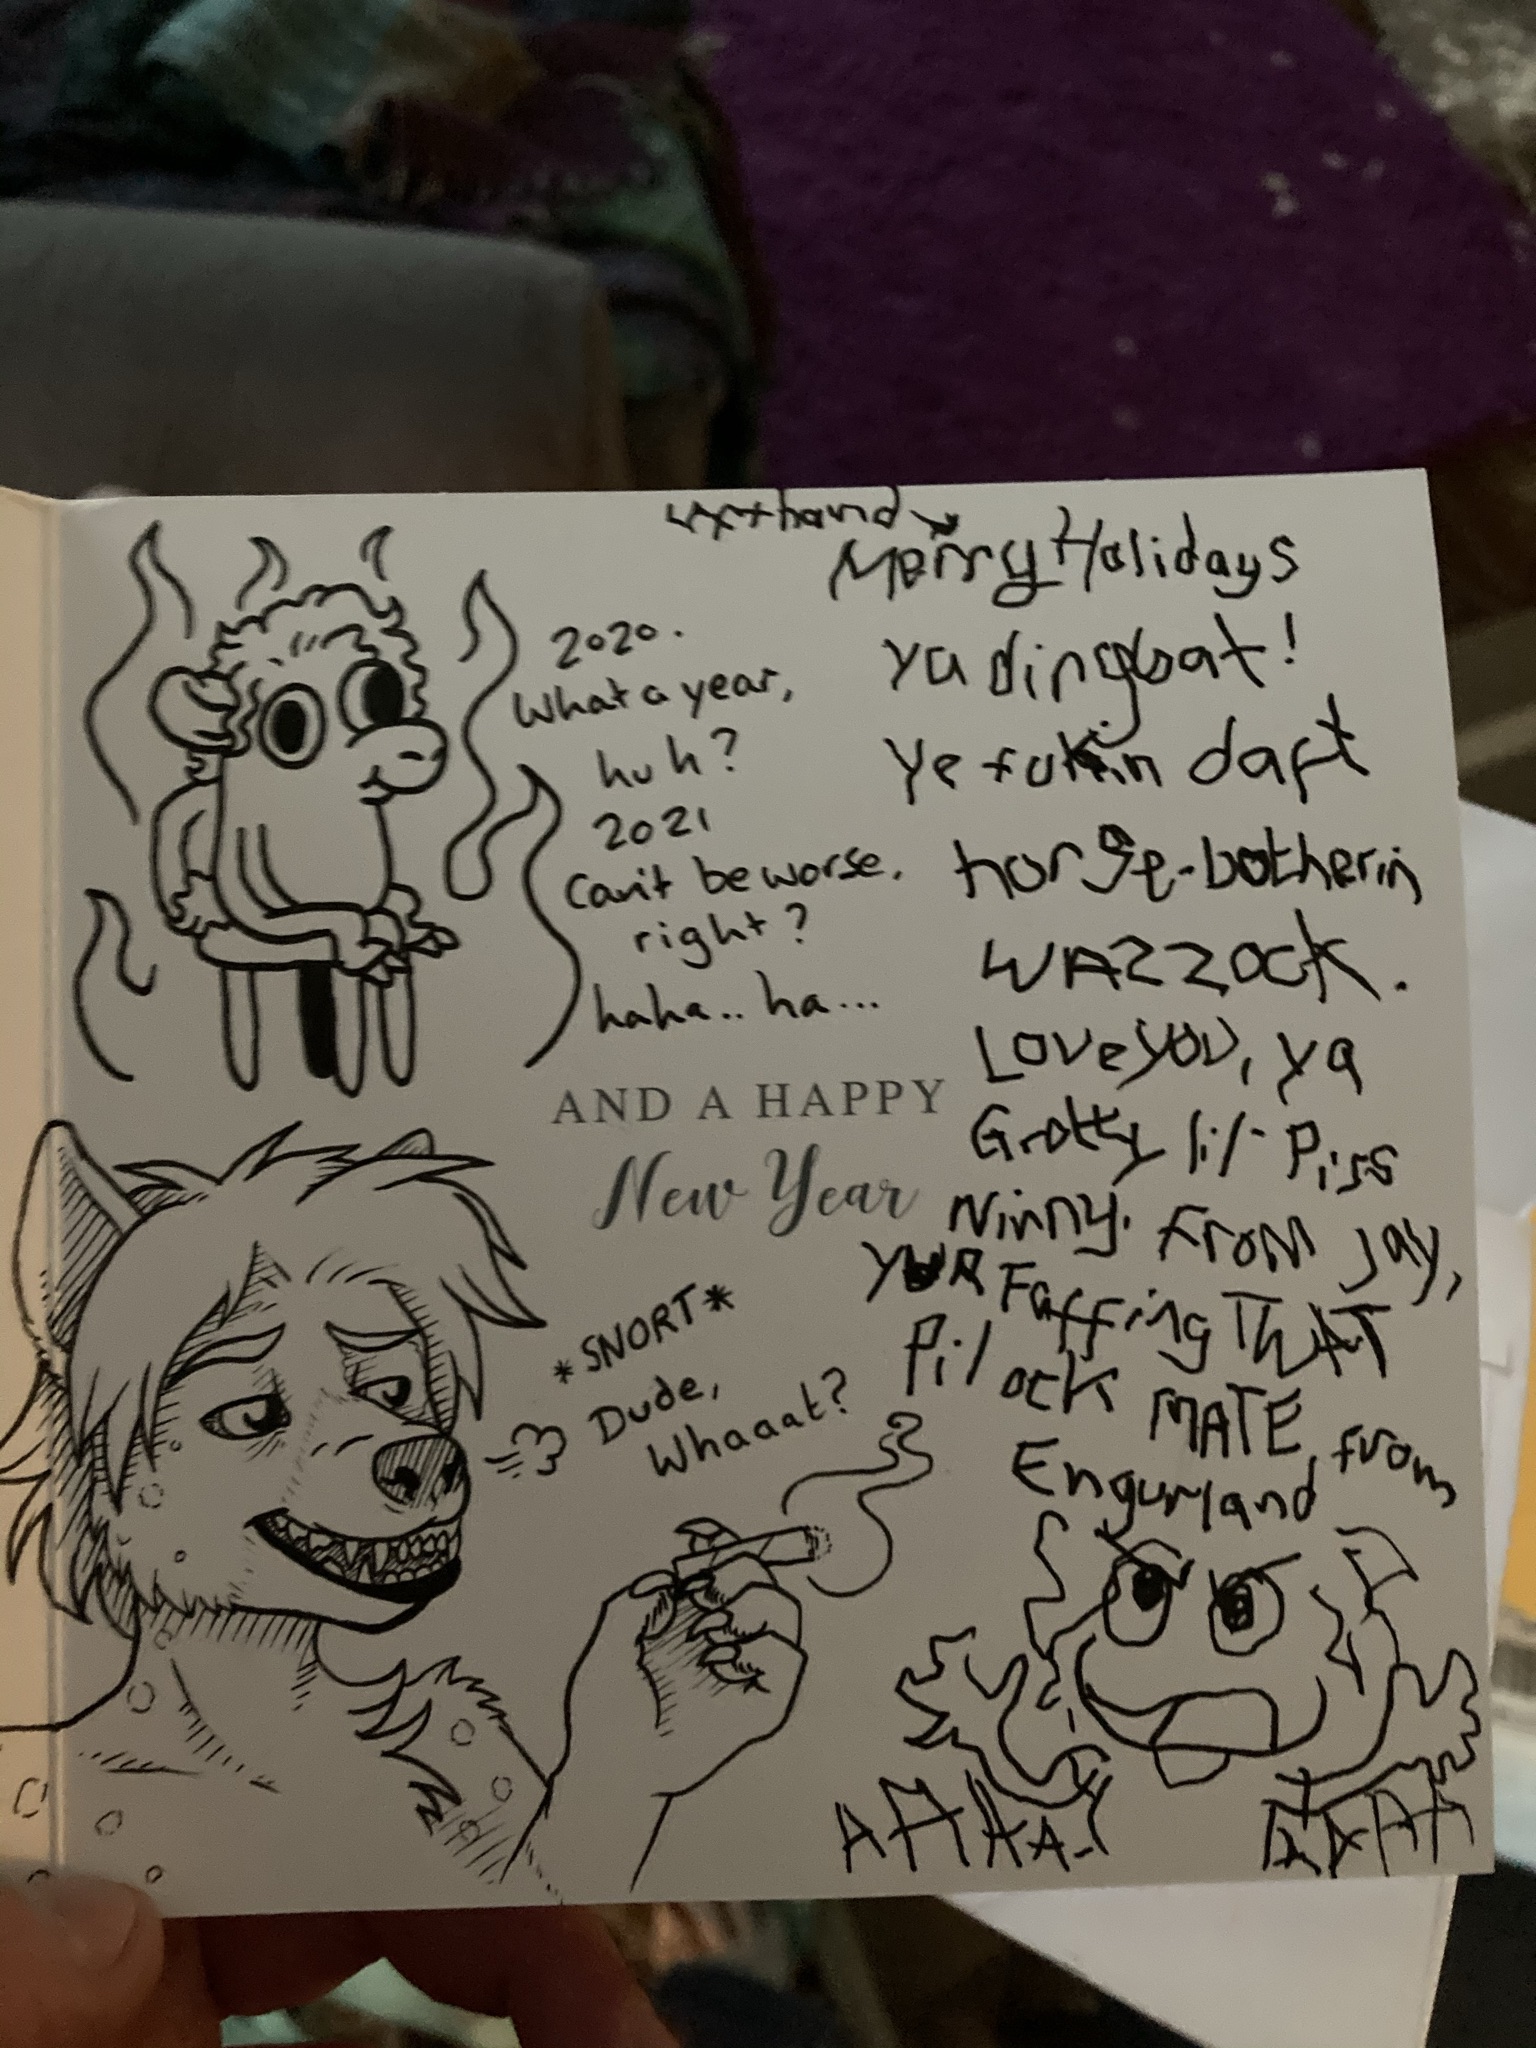 2020.
What a year,
huh?
2021
Can't be worse,
right?
haha.. ha...
AND A HAPPY
New Year
*SNORT*
Dude,
Whaaat?
hand
Merry Holidays
ya dingbat!
Ye fukin daft
horse-botherin
WAZZOCK.
Love you, ya
Grotty lil' Piss
Ninny. From Jay,
YUR Faffing TWAT
Pillock MATE, from
Engurland
AAAAA-
AAAAA